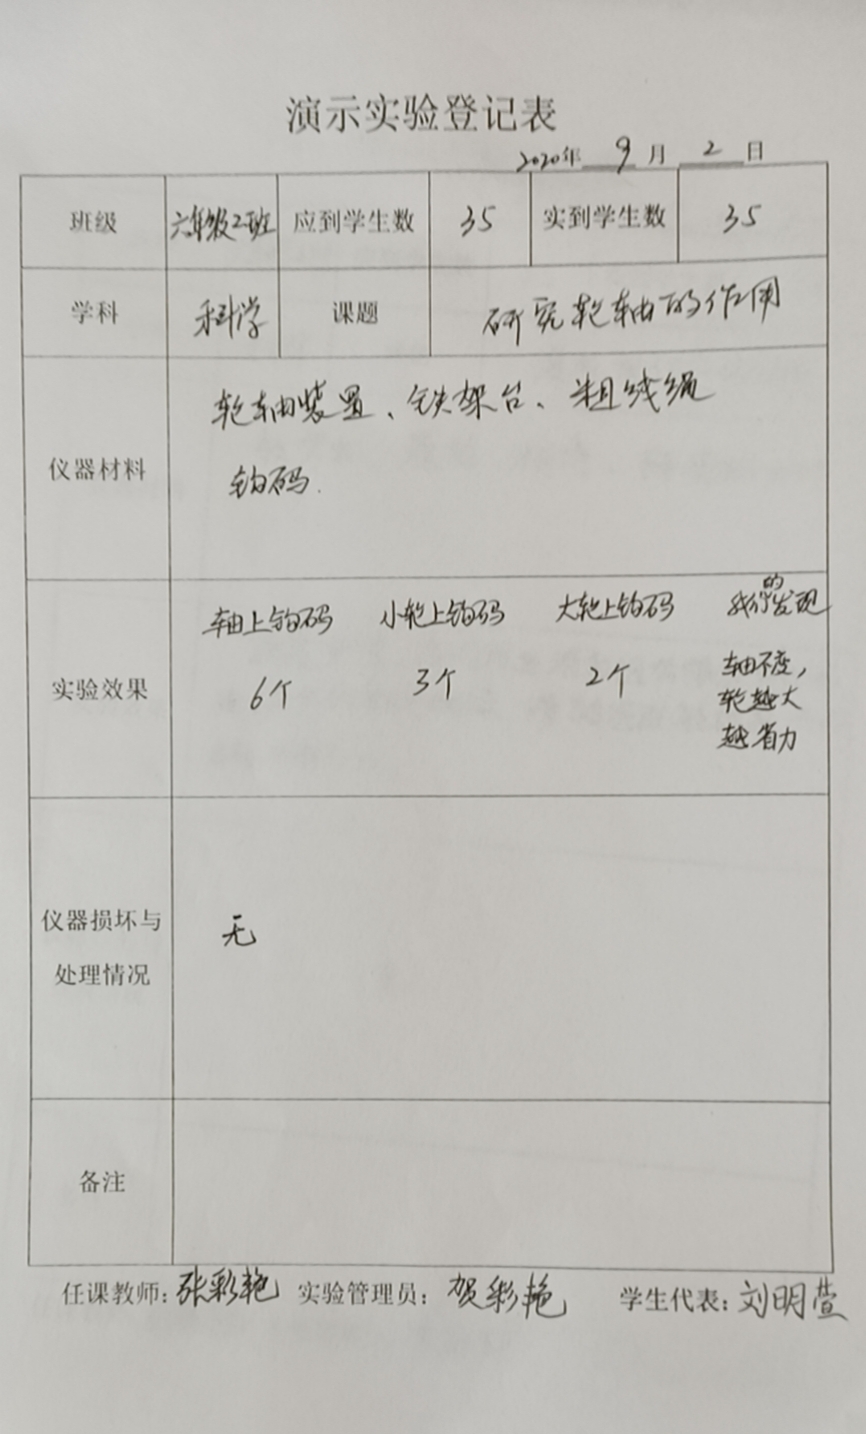 演示实验登记表
2020年 9 月 2 日
班级 六年级2班 应到学生数 35 实到学生数 35
学科 科学 课题 研究轮轴的作用
仪器材料 轮轴装置、铁架台、粗线绳
钩码.
实验效果 轴上钩码 小轮上钩码 大轮上钩码 我们的发现
6个 3个 2个 轴不变,
轮越大
越省力
仪器损坏与
处理情况
无
备注
任课教师:张彩艳 实验管理员:贺彩艳 学生代表:刘明萱